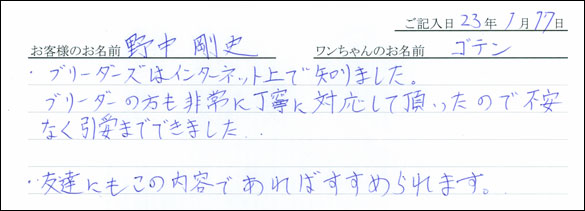 ご記入日 23年 1月 17日
お客様のお名前 野中 剛史 ワンちゃんのお名前 ゴテン
・ブリーダーズはインターネット上で知りました。
ブリーダーの方も非常に丁寧に対応して頂いたので不安
なく引受までできました..
・友達にもこの内容であればすすめられます。